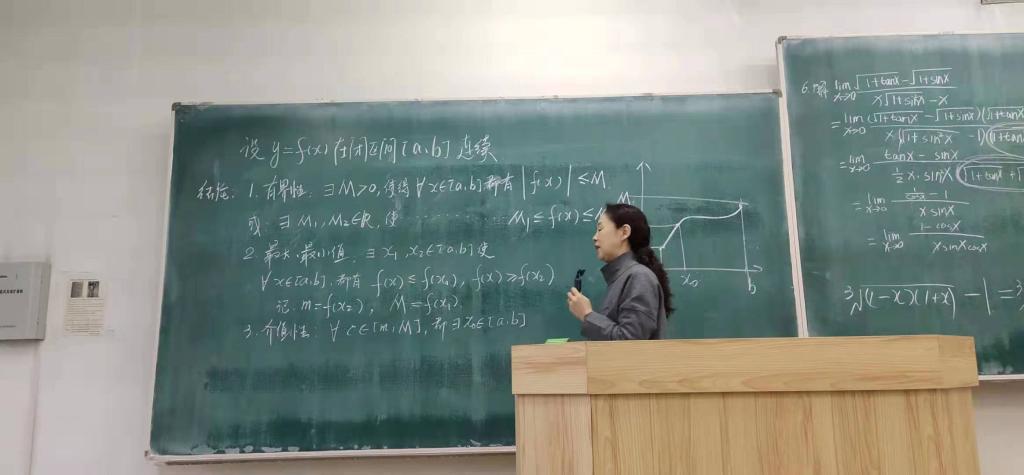 设 y=f(x) 在闭区间[a,b] 连续
结论: 1. 有界性. ∃M>0, 使得 ∀x∈[a,b] 都有 |f(x)| ≤M.
或: ∃ M₁, M₂∈R, 使 ………… M₁≤f(x)≤
2. 最大.最小值. ∃ x₁, x₂∈[a,b] 使
∀x∈[a,b], 都有 f(x)≤f(x₁), f(x)≥f(x₂)
记: m=f(x₂), M=f(x₁).
3. 介值性: ∀ c∈[m,M], 都∃x₀∈[a,b]
M
x₀
b
6.解 lim x→0 (√1+tanx − √1+sinx) / (x√1+sin²x − x)
= lim x→0 (√1+tanx − √1+sinx)(√1+tanx / x(√1+sin²x − 1)(√1+tanx
= lim x→0 (tanx − sinx) / (½x·sin²x (√1+tanx + √
= lim x→0 (1/cosx − 1) / (x sinx)
= lim x→0 (1−cosx) / (x sinx cosx)
³√(1−x)(1+x) − 1 = ³